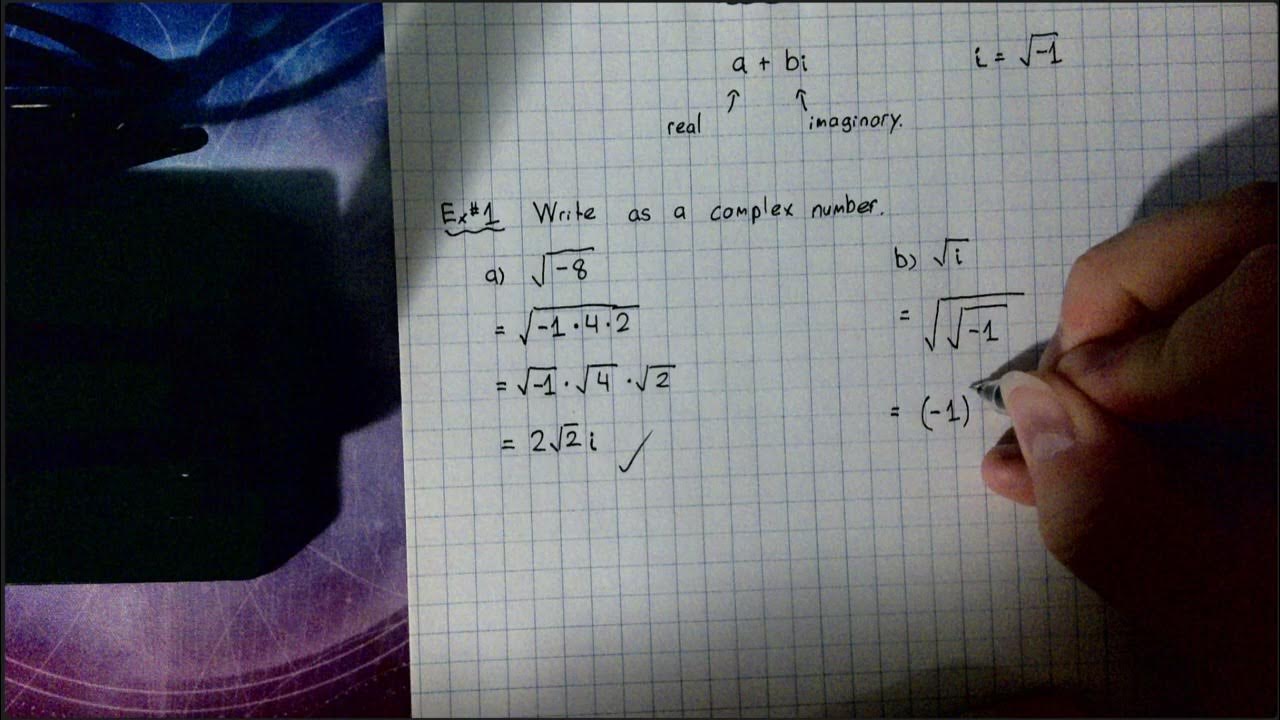 a + bi
i = √-1
real ↑ ↑ imaginary.
Ex#1 Write as a complex number.
a) √-8
= √-1·4·2
= √-1 · √4 · √2
= 2√2 i ✓
b) √i
= √√-1
= (-1)